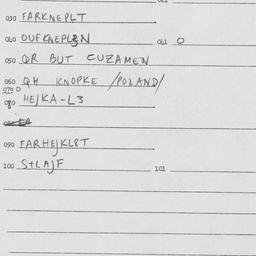 030 FARKNEPLT
040 OUFKNEPLZN 041 O
050 QR BUT CUZAMEN
060 QH KNOPKE /POLAND/
070 O
080 HEJKA-L3
090 FARHEJKL8T
100 S+LAJF 101